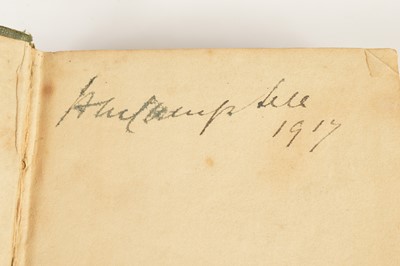 H M Campbell
1917